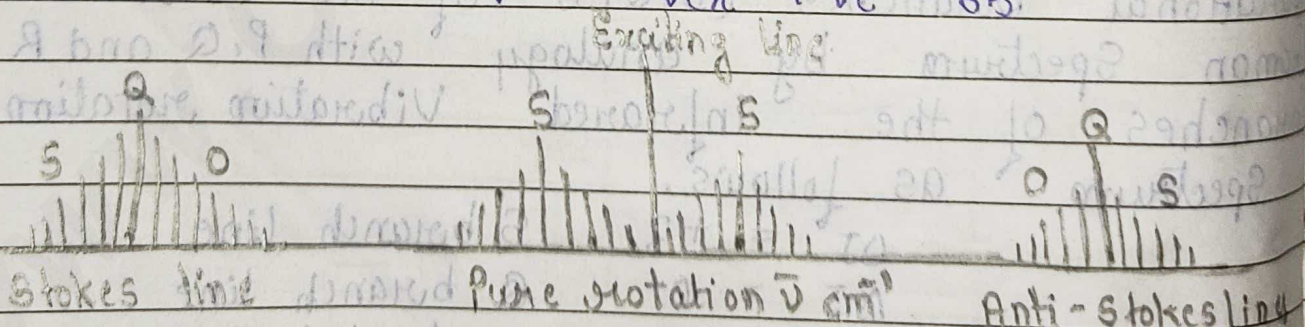 Exciting line
Q S S Q
S O O S
Stokes line Pure rotation ν̄ cm⁻¹ Anti-Stokes line